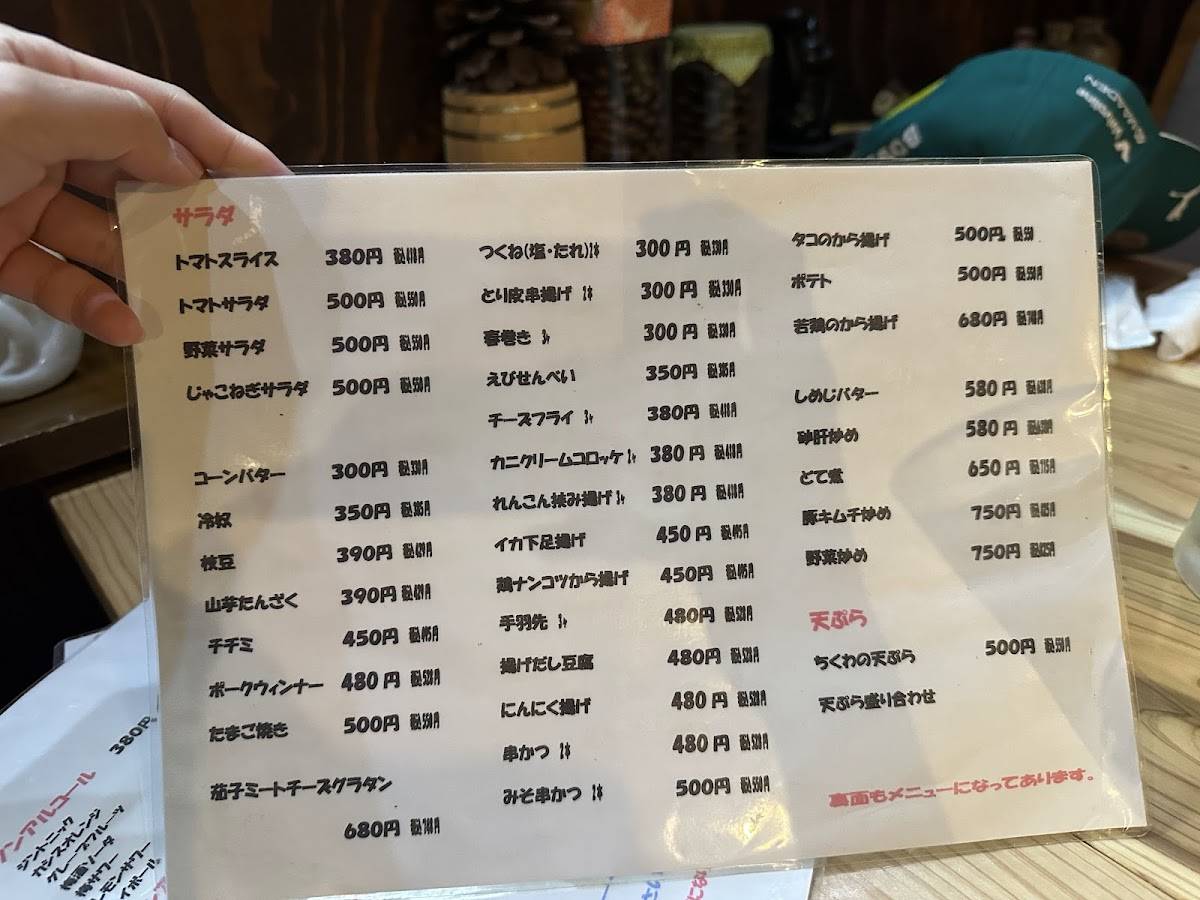 サラダ
トマトスライス 380円 税込418円
トマトサラダ 500円 税込550円
野菜サラダ 500円 税込550円
じゃこねぎサラダ 500円 税込550円
コーンバター 300円 税込330円
冷奴 350円 税込385円
枝豆 390円 税込429円
山芋たんざく 390円 税込429円
チヂミ 450円 税込495円
ポークウィンナー 480円 税込528円
たまご焼き 500円 税込550円
茄子ミートチーズグラタン
680円 税込748円
つくね(塩・たれ)2本 300円 税込330円
とり皮串揚げ 2本 300円 税込330円
春巻き 3ヶ 300円 税込330円
えびせんべい 350円 税込385円
チーズフライ 3ヶ 380円 税込418円
カニクリームコロッケ 2ヶ 380円 税込418円
れんこん挟み揚げ 3ヶ 380円 税込418円
イカ下足揚げ 450円 税込495円
鶏ナンコツから揚げ 450円 税込495円
手羽先 3ヶ 480円 税込528円
揚げだし豆腐 480円 税込528円
にんにく揚げ 480円 税込528円
串かつ 2本 480円 税込528円
みそ串かつ 2本 500円 税込550円
タコのから揚げ 500円。税込550
ポテト 500円 税込550円
若鶏のから揚げ 680円 税込748円
しめじバター 580円 税込638円
砂肝炒め 580円 税込638円
どて煮 650円 税込715円
豚キムチ炒め 750円 税込825円
野菜炒め 750円 税込825円
天ぷら
ちくわの天ぷら 500円 税込550円
天ぷら盛り合わせ
裏面もメニューになってあります。
380円
ンアルコール
ジントニック
カシスオレンジ
グレープフルーツ
梅酒ソーダ
梅サワー
レモンサワー
イボール